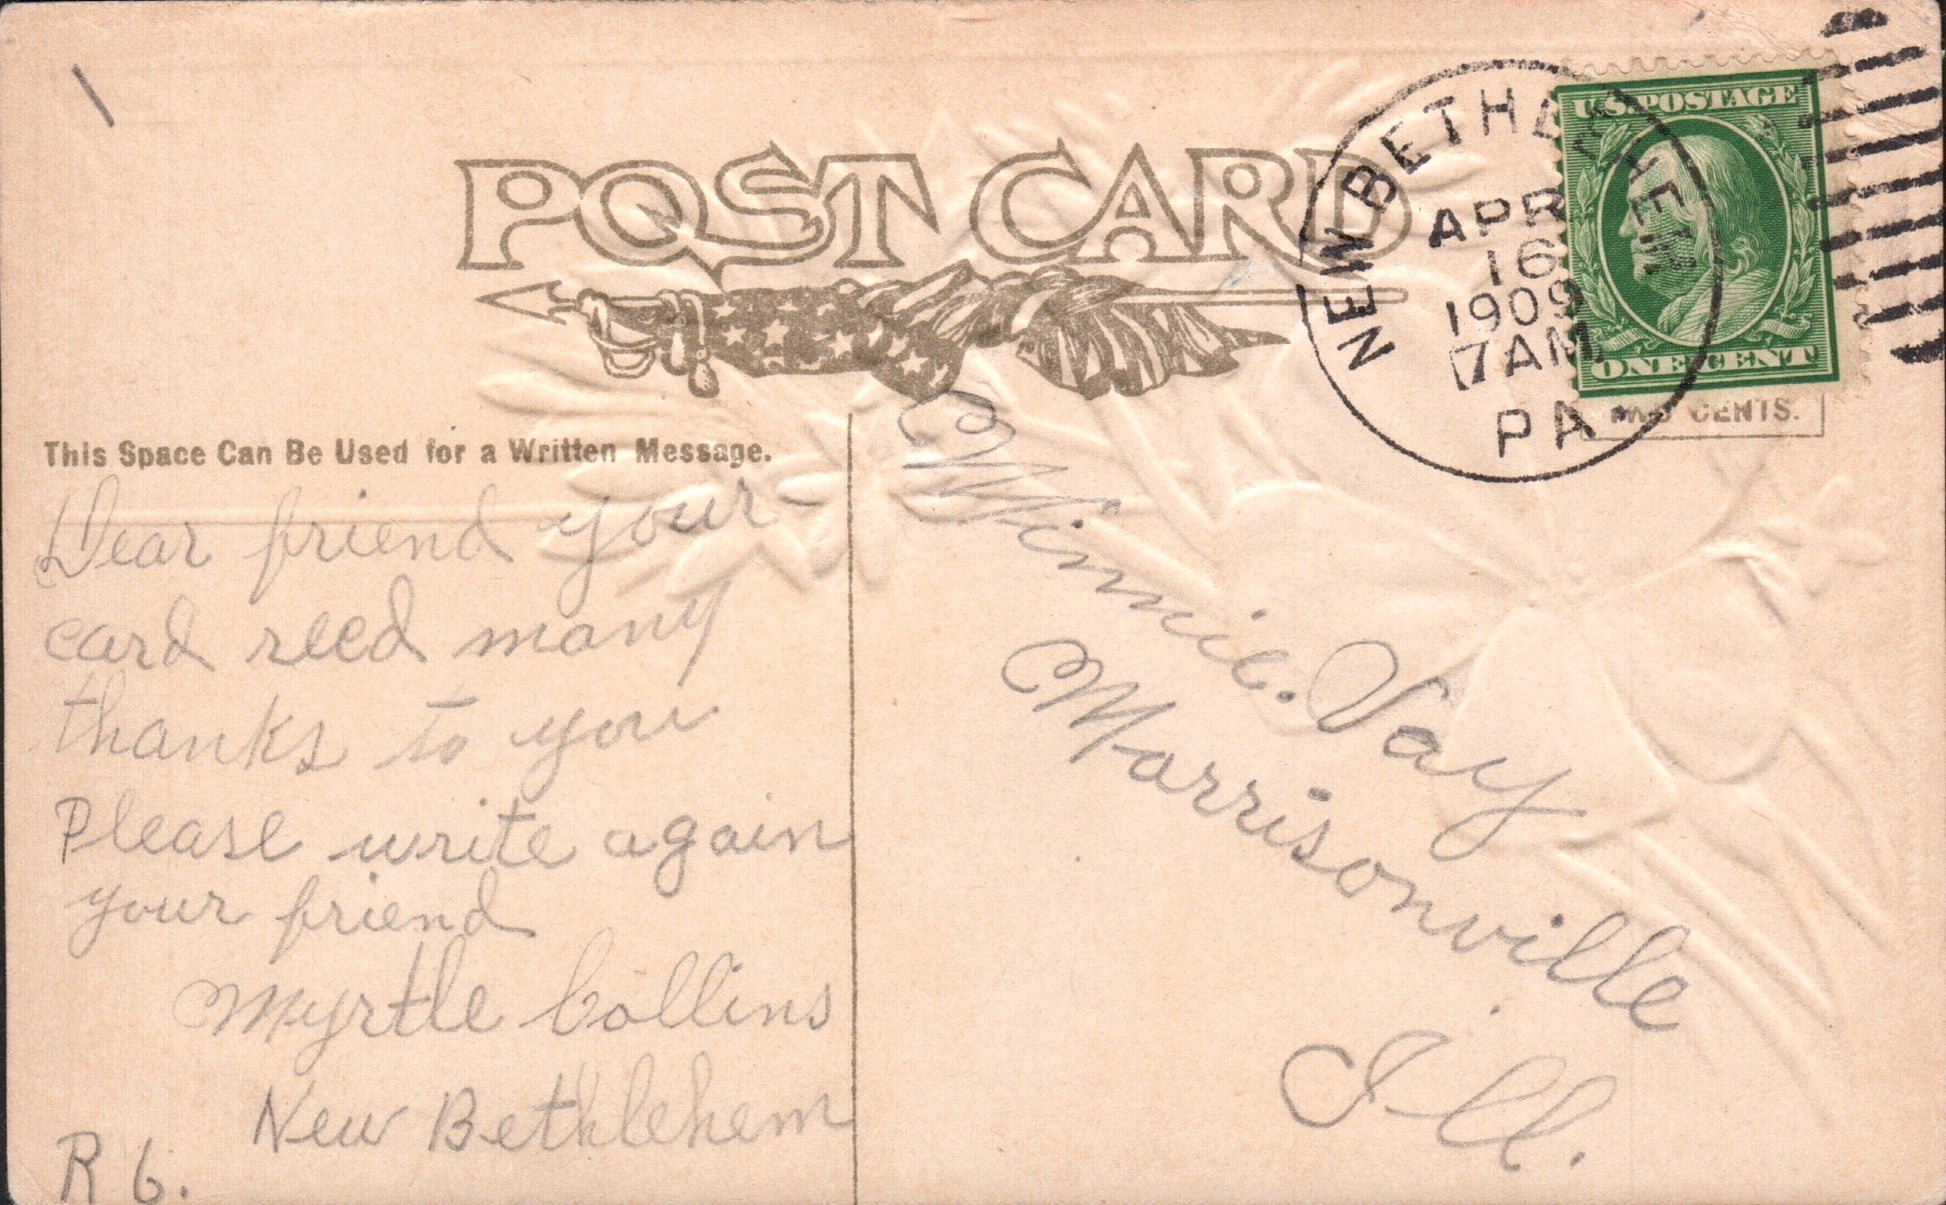 POST CARD
NEW BETHLEHEM
APR
16
1909
7 AM
PA.
U.S. POSTAGE
ONE CENT
CENTS.
This Space Can Be Used for a Written Message.
Dear friend your
card recd many
thanks to you
Please write again
your friend
Myrtle Collins
New Bethlehem
R 6.
Minnie. Vay
Morrisonville
Ill.